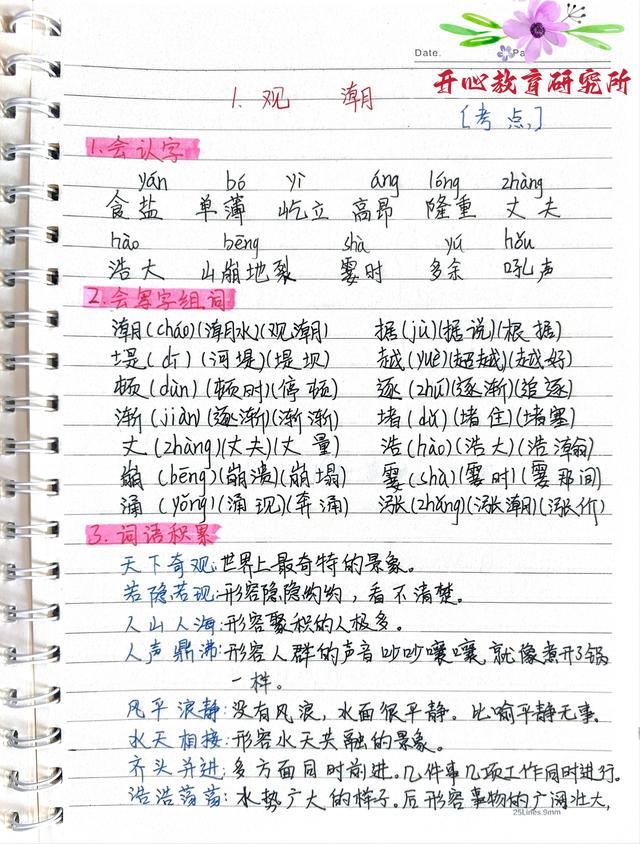 Date.
Pa
开心教育研究所
1. 观 潮
[考点]
1.会认字
yán bó yì áng lóng zhàng
食盐 单薄 屹立 高昂 隆重 丈夫
hào bēng shà yú hǒu
浩大 山崩地裂 霎时 多余 吼声
2.会写字组词
潮(cháo)(潮水)(观潮) 据(jù)(据说)(根据)
堤(dī)(河堤)(堤坝) 越(yuè)(超越)(越好)
顿(dùn)(顿时)(停顿) 逐(zhú)(逐渐)(追逐)
渐(jiàn)(逐渐)(渐渐) 堵(dǔ)(堵住)(堵塞)
丈(zhàng)(丈夫)(丈量) 浩(hào)(浩大)(浩瀚)
崩(bēng)(崩溃)(崩塌) 霎(shà)(霎时)(霎那间)
涌(yǒng)(涌现)(奔涌) 涨(zhǎng)(涨潮)(涨价)
3.词语积累
天下奇观:世界上最奇特的景象。
若隐若现:形容隐隐约约,看不清楚。
人山人海:形容聚积的人极多。
人声鼎沸:形容人群的声音吵吵嚷嚷,就像煮开了锅
一样。
风平浪静:没有风浪,水面很平静。比喻平静无事。
水天相接:形容水天共融的景象。
齐头并进:多方面同时前进。几件事几项工作同时进行。
浩浩荡荡:水势广大的样子。后形容事物的广阔壮大,
25Lines.9mm